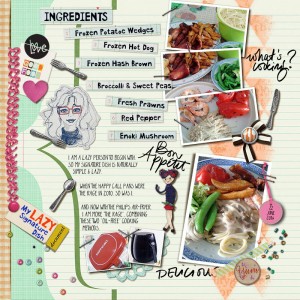 INGREDIENTS
Frozen Potatoe Wedges
Frozen Hot Dog
Frozen Hash Brown
Broccoli & Sweet Peas
Fresh Prawns
Red Pepper
Enoki Mushroom
love
what's cooking?
Bon Appetit
I AM A LAZY PERSON TO BEGIN WITH
SO MY SIGNATURE DISH IS NATURALLY
SIMPLE & LAZY.
WHEN THE HAPPY CALL PANS WERE
THE RAGE IN 2010 SO WAS I.
AND NOW WITH THE PHILIPS AIR-FRYER,
I AM MORE THE RAGE... COMBINING
THESE TWO OIL-FREE COOKING
METHODS.
My LAZY
Signature
Dish
DELICIOUS
yum